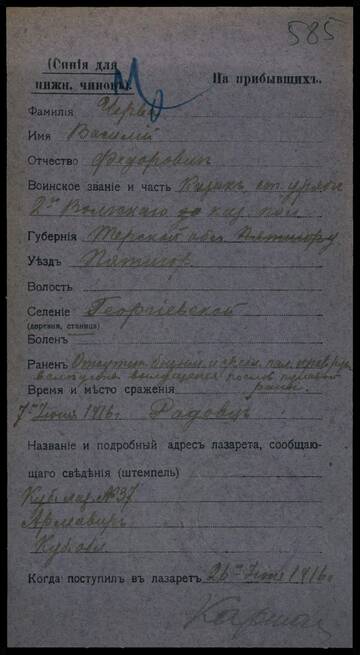 585
(Синія для
нижн. чиновъ).
На прибывшихъ.
Фамилія
Имя Василій
Отчество Федоровичъ
Воинское званіе и часть Казакъ ст. уряд
2го Волжскаго каз. пол
Губернія Терской обл.
Уѣздъ Пятигор
Волость
Селеніе Георгіевской
(деревня, станица)
Боленъ
Раненъ
Время и мѣсто сраженія
7го Іюня 1916г Радовцъ
Названіе и подробный адресъ лазарета, сообщаю-
щаго свѣдѣнія (штемпель)
Куб. лаз. № 37
Армавиръ
Куб обл
Когда поступилъ въ лазаретъ 26го Іюня 1916г